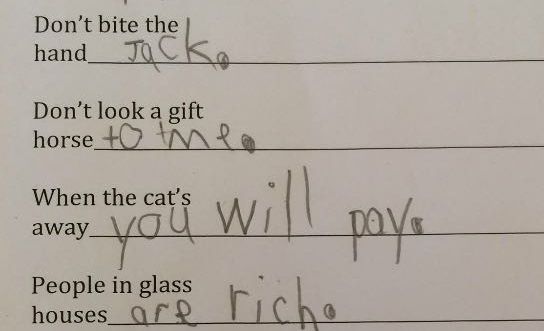 Don't bite the
hand Jack.
Don't look a gift
horse to me.
When the cat's
away you will pay.
People in glass
houses are rich.